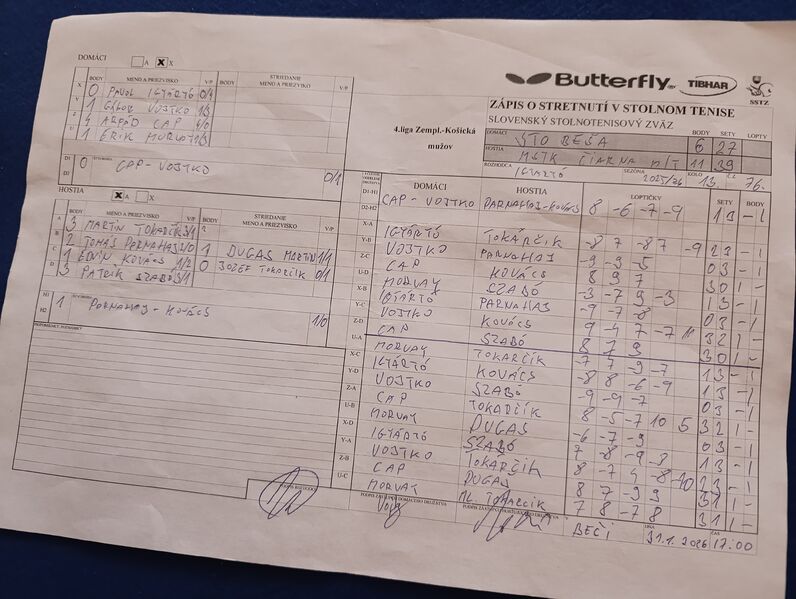 DOMÁCI A X X
BODY MENO A PRIEZVISKO V/P BODY STRIEDANIE MENO A PRIEZVISKO V/P
X 0 PAVOL IGYÁRTÓ 0/4
Y 1 GÁBOR VOJTKO 1/3
Z 4 ARPÁD CAP 4/0
U 1 ERIK MORVAY 1/3
D1 D2 0 ŠTVORHRA CAP - VOJTKO 0/1
HOSTIA X A X
BODY MENO A PRIEZVISKO V/P BODY STRIEDANIE MENO A PRIEZVISKO V/P
A 3 MARTIN TOKARČÍK 3/1
B 2 TOMAS PARNAHAJ 2/0 1 DUGAS MARTIN 1/1
C 1 ERVÍN KOVÁCS 1/2 0 JOZEF TOKARČÍK 0/1
D 3 PATRIK SZABÓ 3/1
H1 H2 1 ŠTVORHRA PARNAHAJ - KOVÁCS 1/0
Butterfly TIBHAR SSTZ
4.liga Zempl.-Košická mužov
ZÁPIS O STRETNUTÍ V STOLNOM TENISE
SLOVENSKÝ STOLNOTENISOVÝ ZVÄZ
BODY SETY LOPTY
DOMÁCI STO BEŠA 6 27
HOSTIA MSTK ČIERNA N/T 11 39
ROZHODCA IGYÁRTÓ SEZÓNA 2025/26 KOLO 13. Č.Z. 76.
DOMÁCI HOSTIA LOPTIČKY SETY BODY
D1-H1 D2-H2 CAP - VOJTKO PARNAHAJ - KOVÁCS 8 -6 -7 -9 1 3 - 1
X-A IGYÁRTÓ TOKÁRČIK -8 7 -8 7 -9 2 3 - 1
Y-B VOJTKO PARNAHAJ -9 -9 -5 0 3 - 1
Z-C CAP KOVÁCS 8 9 7 3 0 1 -
U-D MORVAY SZABÓ -3 -7 9 -3 1 3 - 1
X-B IGYÁRTÓ PARNAHAJ -9 -7 -8 0 3 - 1
Y-C VOJTKO KOVÁCS 9 -4 7 -7 11 3 2 1 -
Z-D CAP SZABÓ 8 7 9 3 0 1 -
U-A MORVAY TOKARČÍK -7 7 -9 -7 1 3 - 1
X-C IGYÁRTÓ KOVÁCS -8 8 -6 -9 1 3 - 1
Y-D VOJTKO SZABO -9 -9 -7 0 3 - 1
Z-A CAP TOKARČIK 8 -5 -7 10 5 3 2 1 -
U-B MORVAY DUGAS -6 -7 -9 0 3 - 1
X-D IGYÁRTÓ SZABÓ 7 -8 -9 -3 1 3 - 1
Y-A VOJTKO TOKARČÍK 2 3 - 1
Z-B CAP DUGAS 8 7 -9 9 3 1 1 -
U-C MORVAY ML. TOKARČÍK 7 8 -7 8 3 1 1 -
PODPIS ROZHODCU
PODPIS ZÁSTUPCU DOMÁCEHO DRUŽSTVA
DŇA ČAS
BEČI 31.1.2026 17:00